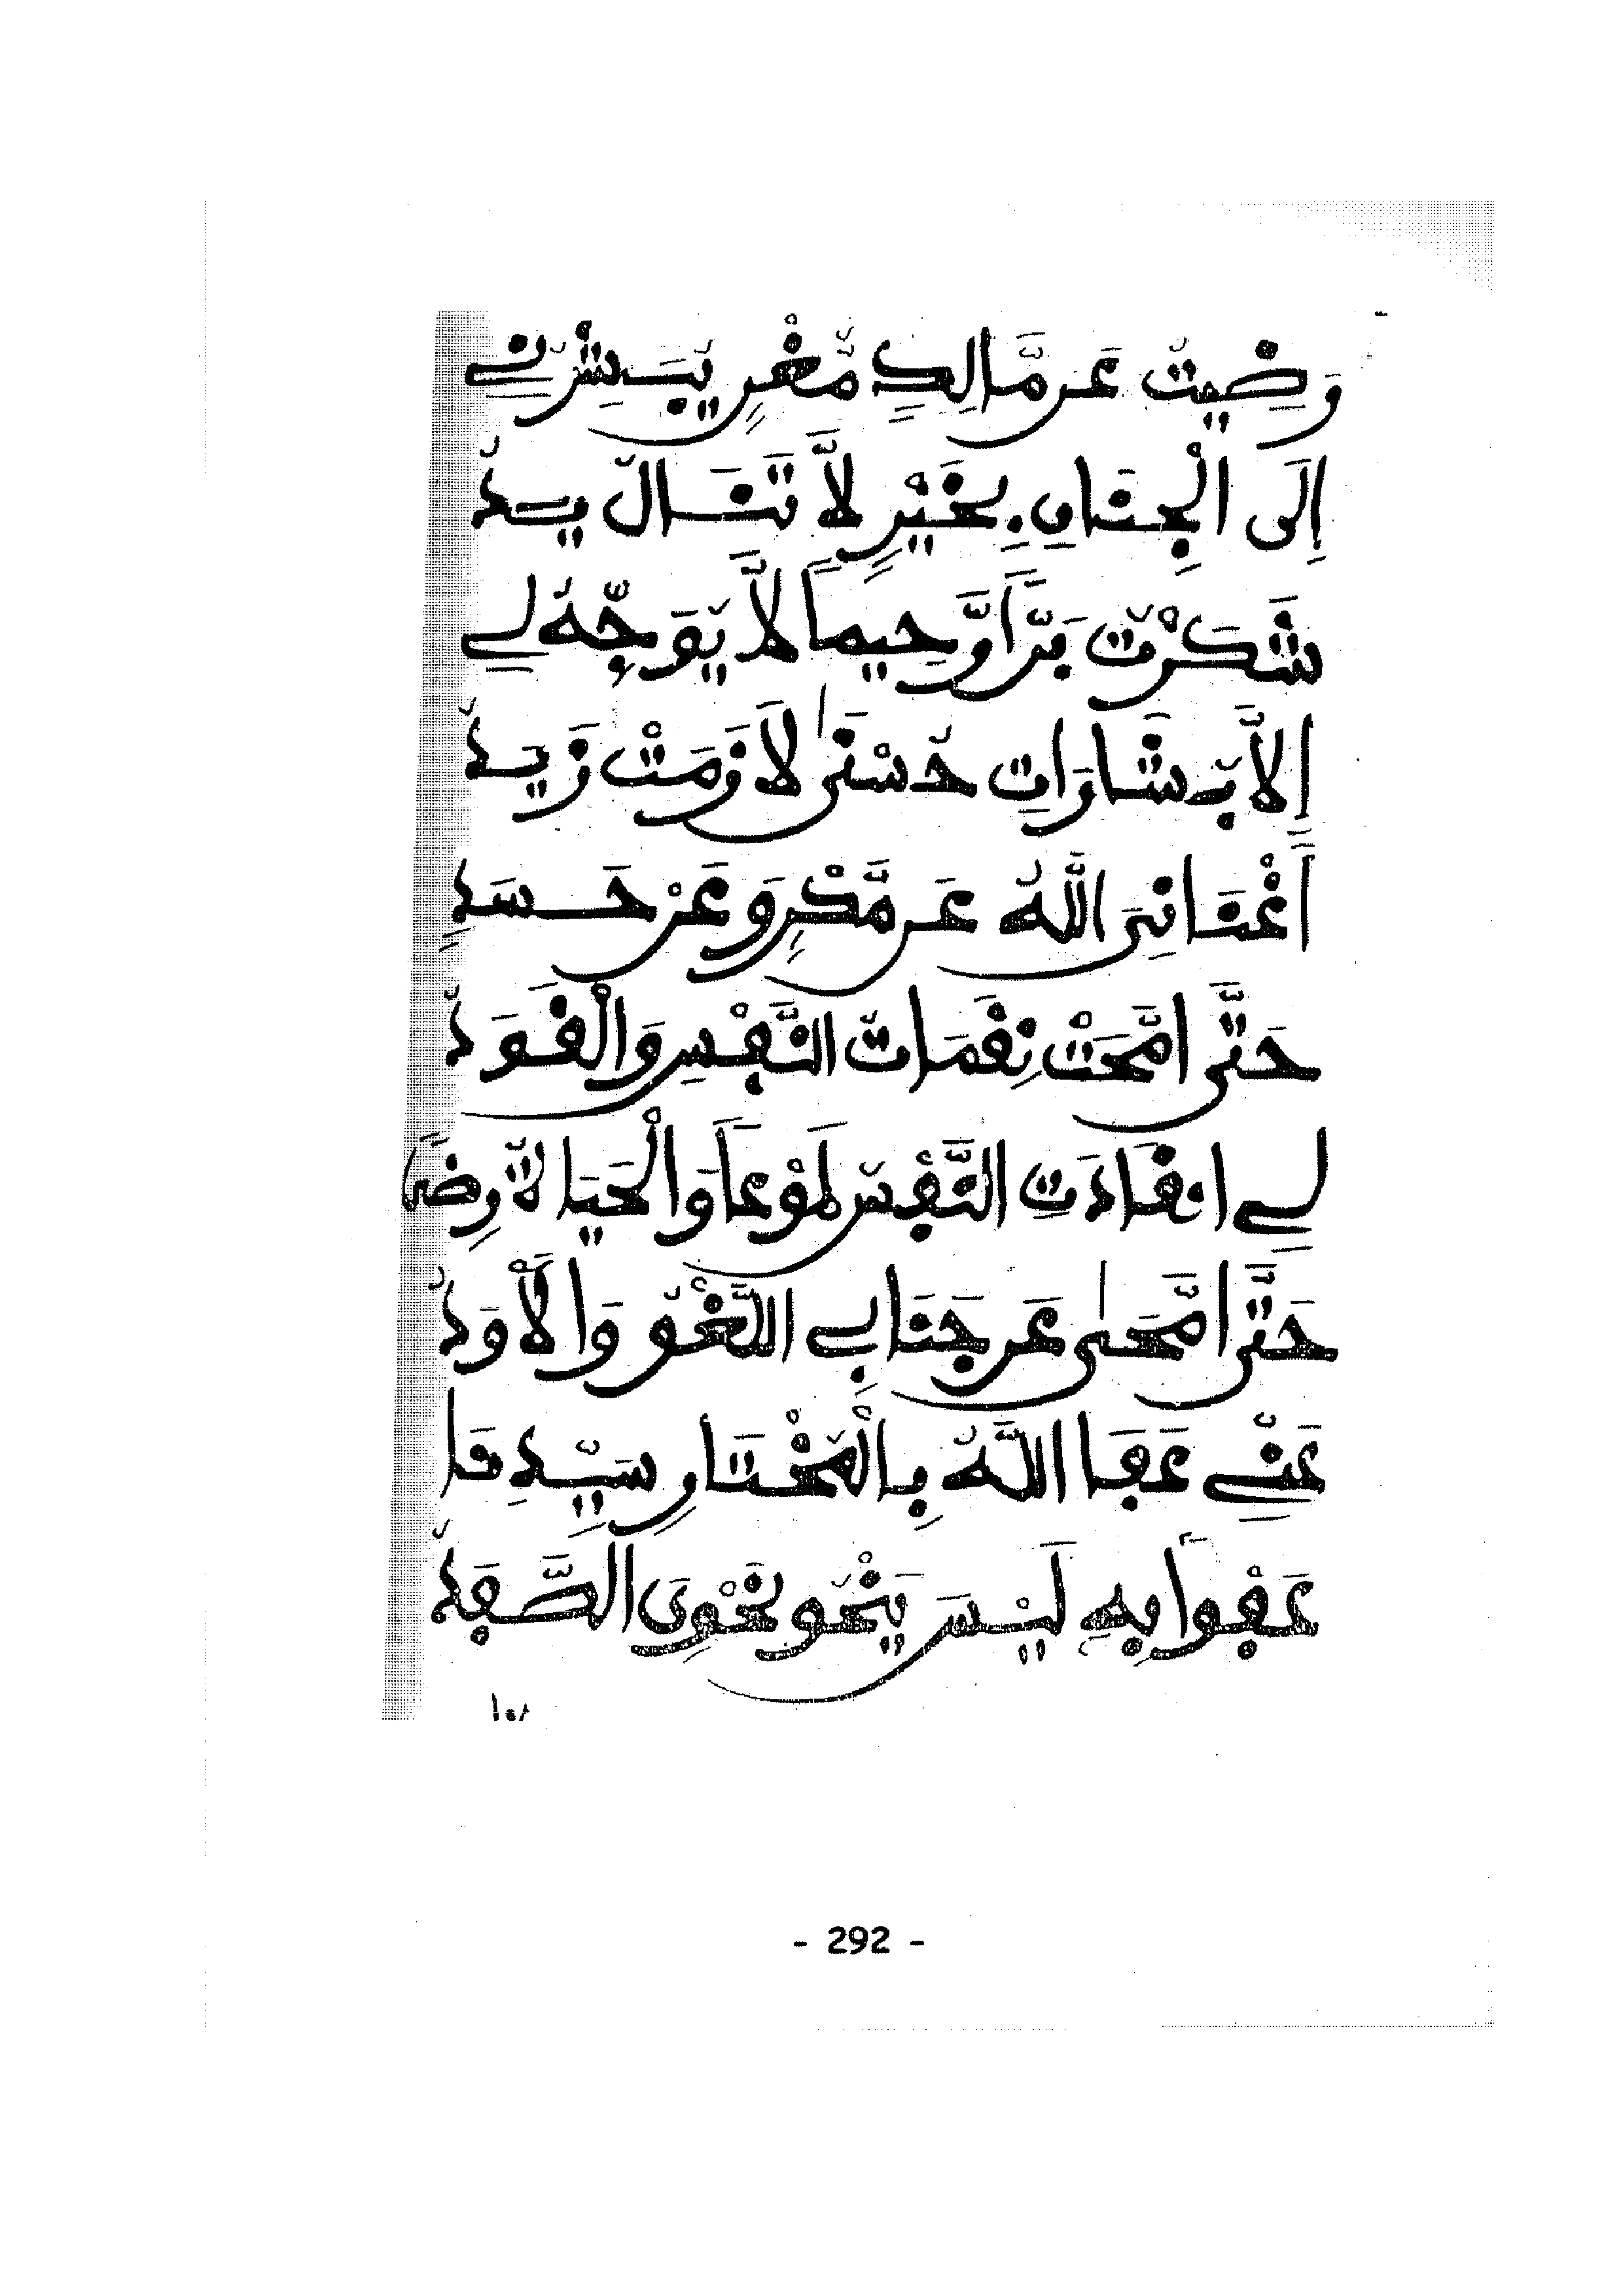 رَضِيتُ عَن مَّالِكٍ مُّغْنٍ يُبَشِّرُنِي
إِلَى الْجِنَانِ بِخَيْرٍ لَّا تَنَالُ يَدُ
شَكَرْتُ بَرًّا رَّحِيمًا لَّا يُوَجِّهُ لِي
إِلَّا بِشَارَاتِ حُسْنَى لَازَمَتْ
أَغْنَانِيَ اللَّهُ عَن مَّكْرٍ وَعَنْ حَسَدٍ
حَتَّى امَّحَتْ نِقَمَاتُ النَّفْسِ وَالْقَوَدُ
لِي انقَادَتِ النَّفْسُ طَوْعًا وَالْحَيَاةُ رِضًا
حَتَّى امَّحَى عَن جَنَابِي اللَّغْوُ وَالْأَوَدُ
عَنِّي عَفَا اللَّهُ بِالْمُخْتَارِ سَيِّدِنَا
عَفْوًا بِهِ لَيْسَ يَنْحُو نَحْوِيَ الصَّفَدُ
- 292 -